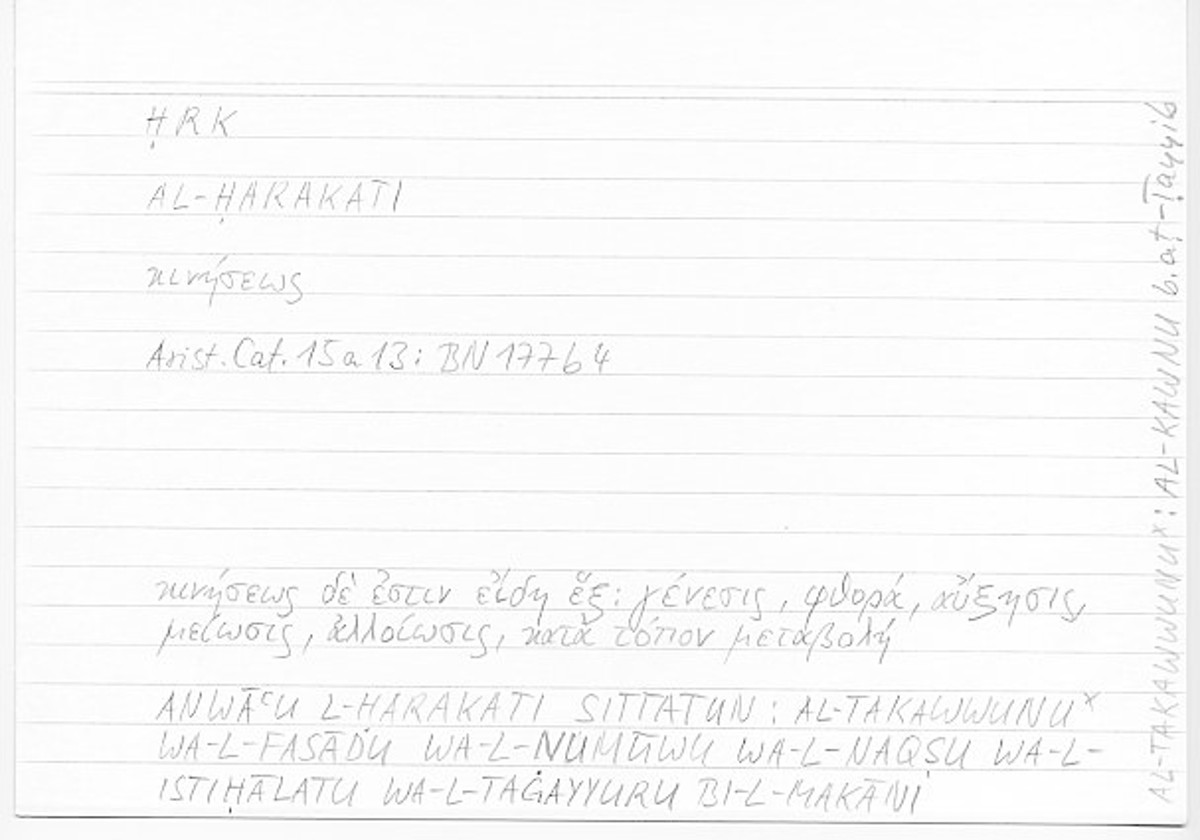 ḤRK
AL-ḤARAKATI
κινήσεως
Arist. Cat. 15 a 13 : BN 177 b 4
κινήσεως δέ ἐστιν εἴδη ἕξ : γένεσις, φθορά, αὔξησις,
μείωσις, ἀλλοίωσις, κατὰ τόπον μεταβολή
ANWĀʿU L-ḤARAKATI SITTATUN : AL-TAKAWWUNUˣ
WA-L-FASĀDU WA-L-NUMŪWU WA-L-NAQṢU WA-L-
ISTIḤĀLATU WA-L-TAĠAYYURU BI-L-MAKĀNI
AL-TAKAWWUNUˣ : AL-KAWNU b. aṭ-Ṭayyib